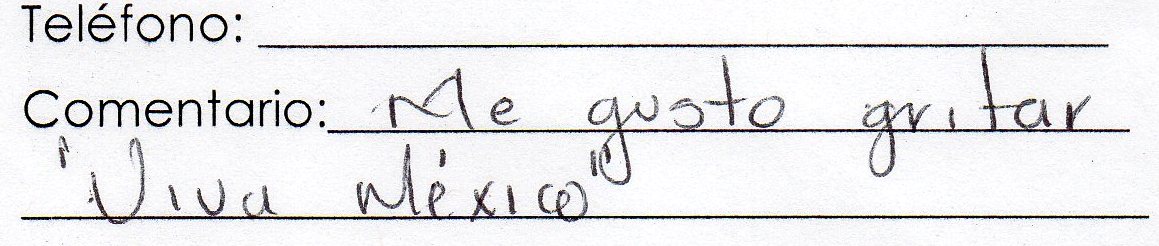 Teléfono:
Comentario: Me gusto gritar
"Viva México"